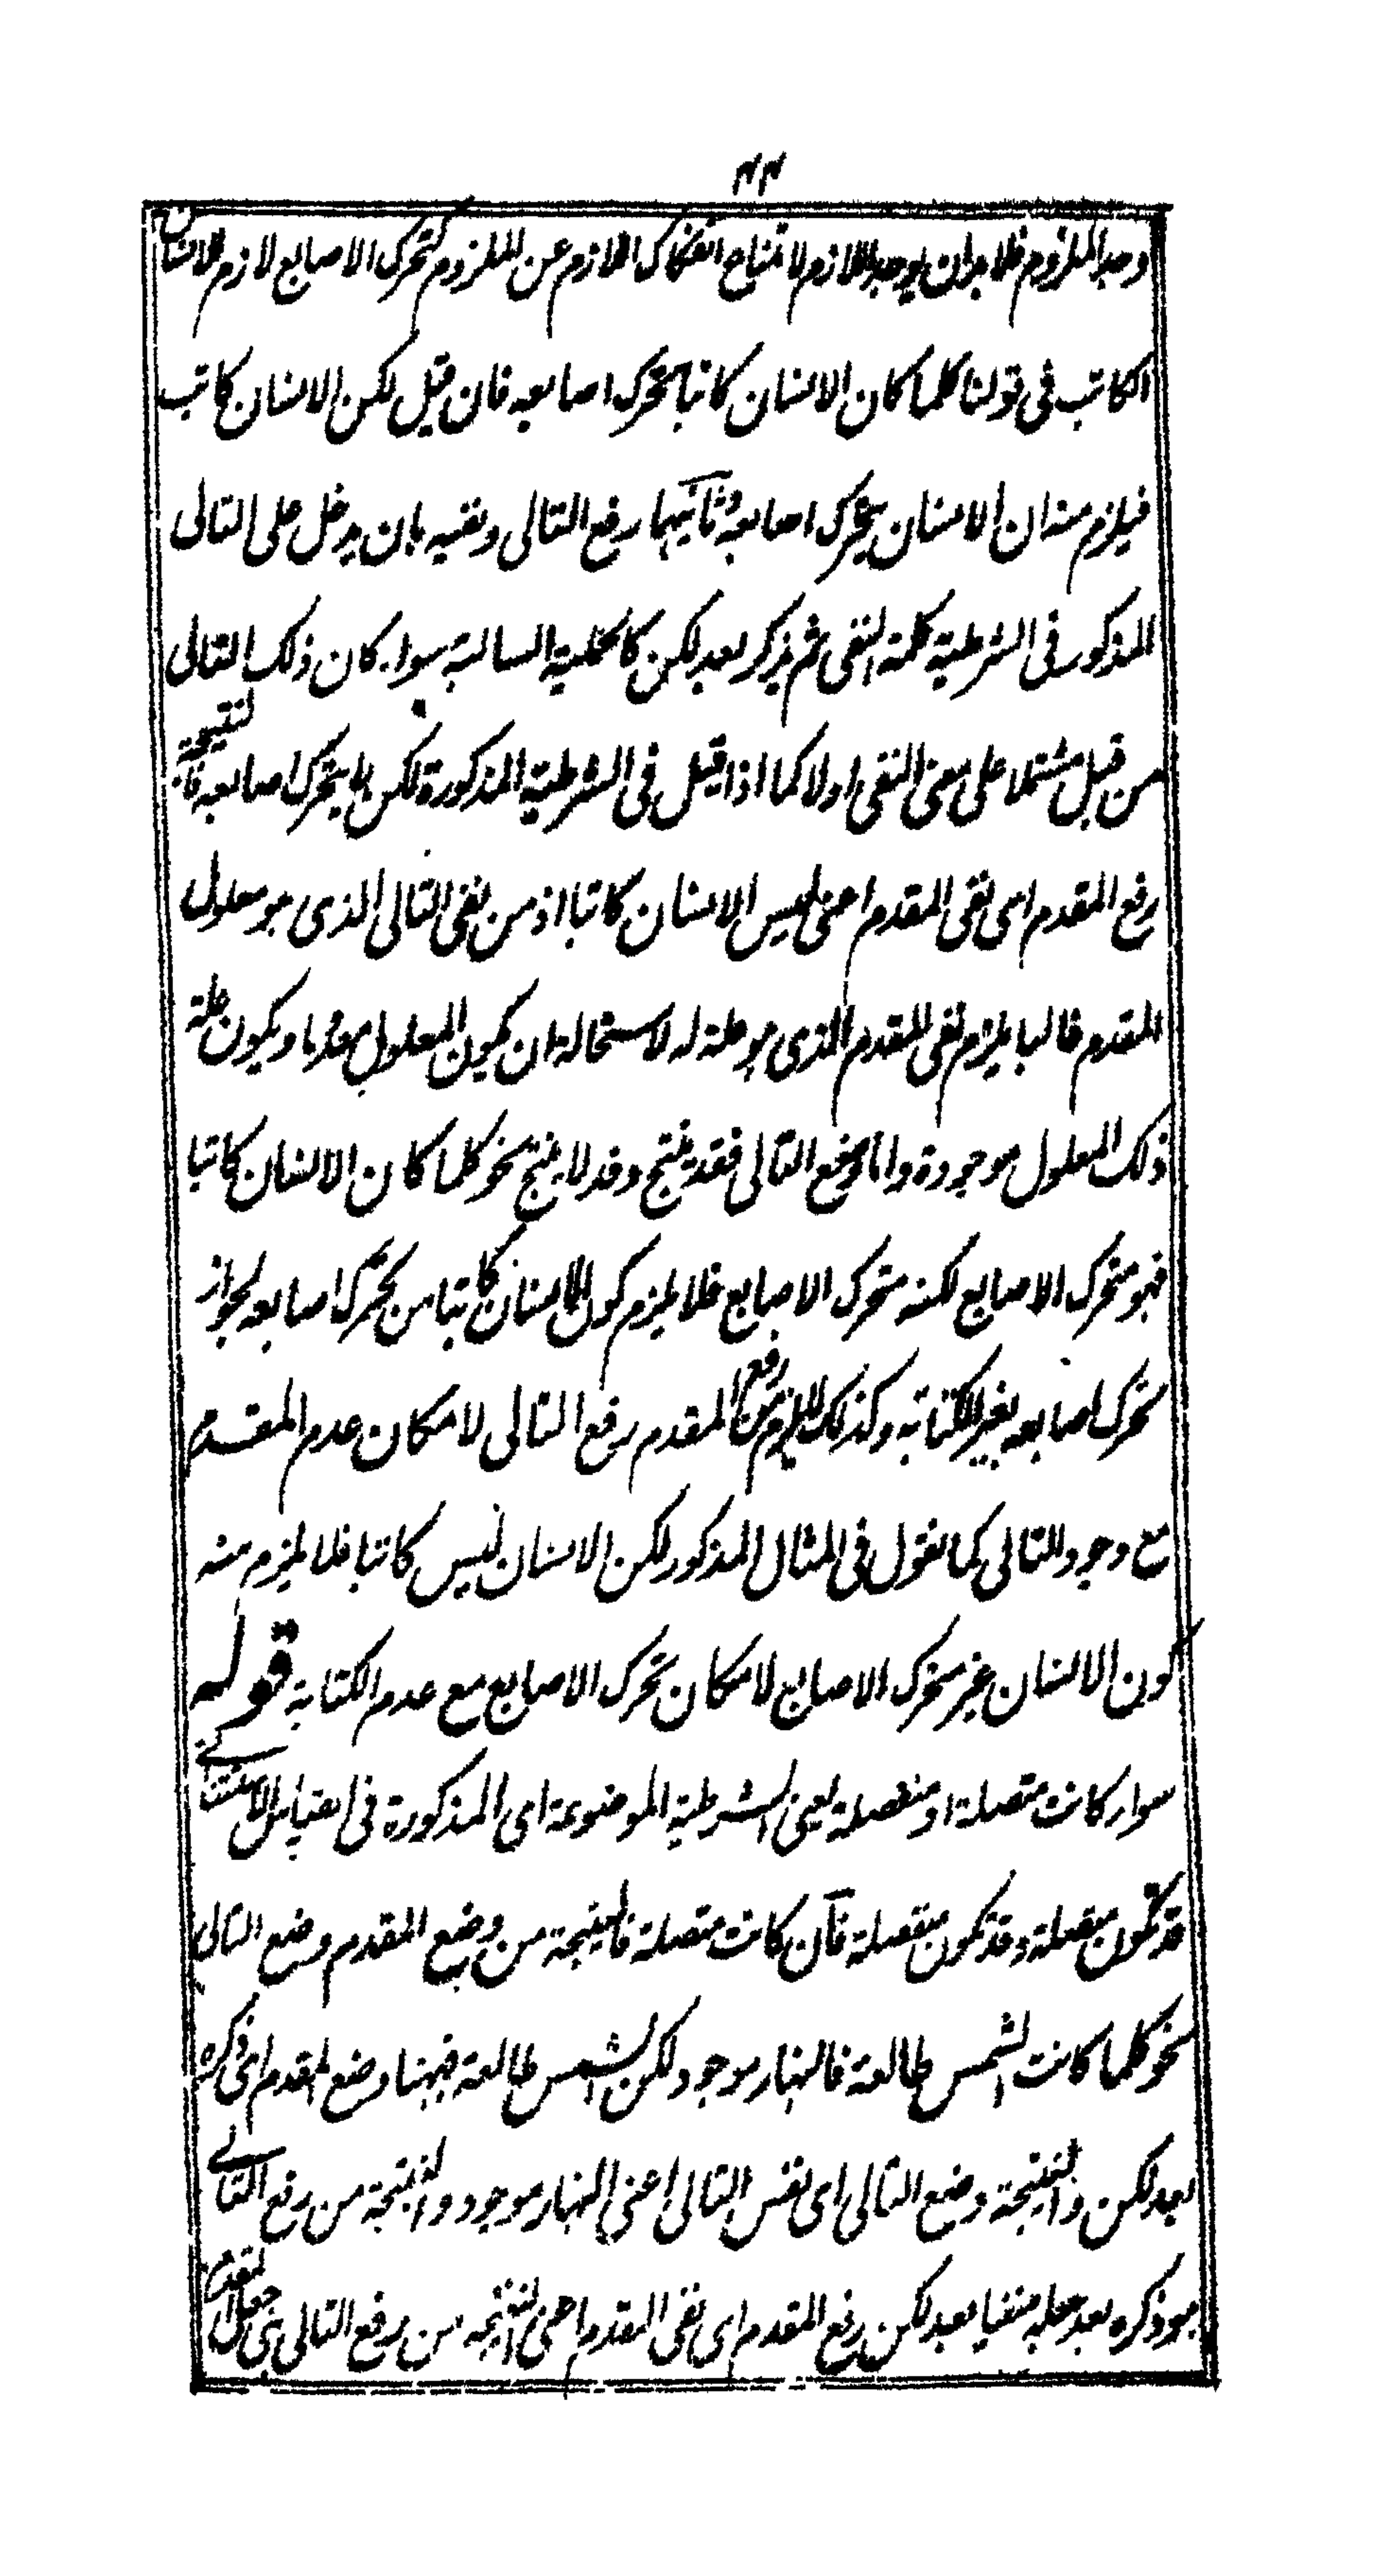 ۴۴
وجد الملزوم فلا بد ان يوجد اللازم لامتناع انفكاك اللازم عن الملزوم كتحرك الاصابع لازم للانسان
الكاتب فى قولنا كلما كان الانسان كاتبا تحرك اصابعه فان قيل لكن الانسان كاتب
فيلزم منه ان الانسان يتحرك اصابعه وثانيهما رفع التالى ونفيه بان يدخل على التالى
المذكور فى الشرطية كلمة النفى ثم يذكر بعد لكن كالحملية السالبة سواء كان ذلك التالى
من قبل مشتملا على معنى النفى اولا كما اذا قيل فى الشرطية المذكورة لكن لم يتحرك اصابعه فالنتيجة
رفع المقدم اى نفى المقدم اعنى ليس الانسان كاتبا اذ من نفى التالى الذى هو معلول
المقدم غالبا يلزم نفى المقدم الذى هو علة له لاستحالة ان يكون المعلول معدوما ويكون علة
ذلك المعلول موجودة واما وضع التالى فقد ينتج وقد لا ينتج نحو كلما كان الانسان كاتبا
فهو متحرك الاصابع لكنه متحرك الاصابع فلا يلزم كون الانسان كاتبا من تحرك اصابعه لجواز
تحرك اصابعه بغير الكتابة وكذلك لا يلزم من رفع المقدم رفع التالى لامكان عدم المقدم
مع وجود التالى كما نقول فى المثال المذكور لكن الانسان ليس كاتبا فلا يلزم منه
كون الانسان غير متحرك الاصابع لامكان تحرك الاصابع مع عدم الكتابة قوله
سواء كانت متصلة او منفصلة يعنى الشرطية الموضوعة اى المذكورة فى القياس الاستثنائى
قد تكون متصلة وقد تكون منفصلة فان كانت متصلة فالنتيجة من وضع المقدم وضع التالى
نحو كلما كانت الشمس طالعة فالنهار موجود لكن الشمس طالعة فههنا وضع المقدم اى ذكره
بعد لكن والنتيجة وضع التالى اى نفس التالى اعنى النهار موجود والنتيجة من رفع التالى
هو ذكره بعد جعله منفيا بعد لكن رفع المقدم اى نفى المقدم اعنى النتيجة من رفع التالى هى جعل المقدم